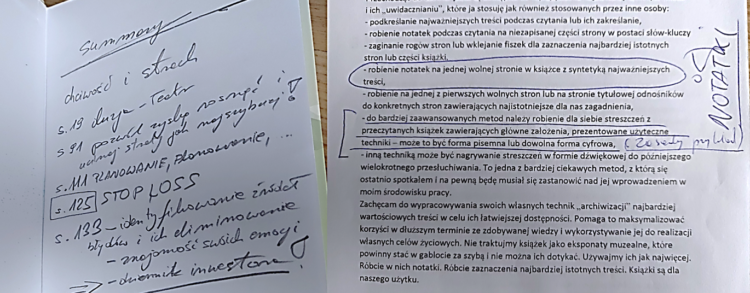 summary
chciwość i strach
s. 19 - Teatr
s. 91 pozwól zyskom rosnąć i
ucinaj straty jak najszybciej!
s. 111 PLANOWANIE, planowanie, ...
s. 125 STOP LOSS
s. 133 - identyfikowanie źródeł
błędów i ich eliminowanie
- znajomość swoich emocji
- dziennik inwestora!
i ich „uwidacznianiu", które ja stosuję jak również stosowanych przez inne osoby:
- podkreślanie najważniejszych treści podczas czytania lub ich zakreślanie,
- robienie notatek podczas czytania na niezapisanej części strony w postaci słów-kluczy
- zaginanie rogów stron lub wklejanie fiszek dla zaznaczenia najbardziej istotnych
stron lub części książki,
- robienie notatek na jednej wolnej stronie w książce z syntetyką najważniejszych
treści,
- robienie na jednej z pierwszych wolnych stron lub na stronie tytułowej odnośników
do konkretnych stron zawierających najistotniejsze dla nas zagadnienia,
- do bardziej zaawansowanych metod należy robienie dla siebie streszczeń z
przeczytanych książek zawierających główne założenia, prezentowane użyteczne
techniki – może to być forma pisemna lub dowolna forma cyfrowa,
- inną techniką może być nagrywanie streszczeń w formie dźwiękowej do późniejszego
wielokrotnego przesłuchiwania. To jedna z bardziej ciekawych metod, z którą się
ostatnio spotkałem i na pewną będę musiał się zastanowić nad jej wprowadzeniem w
moim środowisku pracy.
Zachęcam do wypracowywania swoich własnych technik „archiwizacji" najbardziej
wartościowych treści w celu ich łatwiejszej dostępności. Pomaga to maksymalizować
korzyści w dłuższym terminie ze zdobywanej wiedzy i wykorzystywanie jej do realizacji
własnych celów życiowych. Nie traktujmy książek jako eksponaty muzealne, które
powinny stać w gablocie za szybą i nie można ich dotykać. Używajmy ich jak najwięcej.
Róbcie w nich notatki. Róbcie zaznaczenia najbardziej istotnych treści. Książki są dla
naszego użytku.
NOTATKI